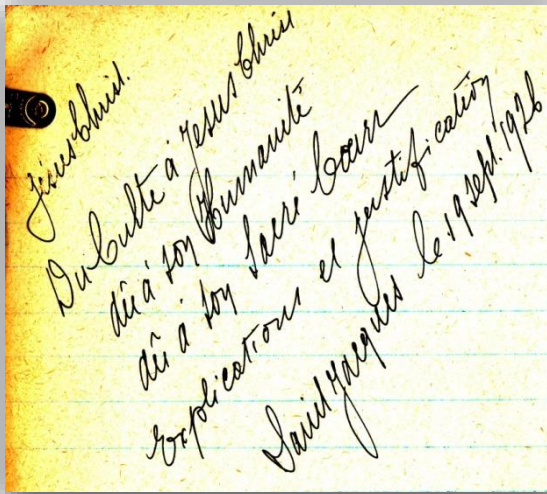 Jésus Christ.
Du Culte à Jesus Christ
dû à son Humanité
dû à son Sacré Cœur
Explications et justification
Saint Jacques le 19 sept. 1926